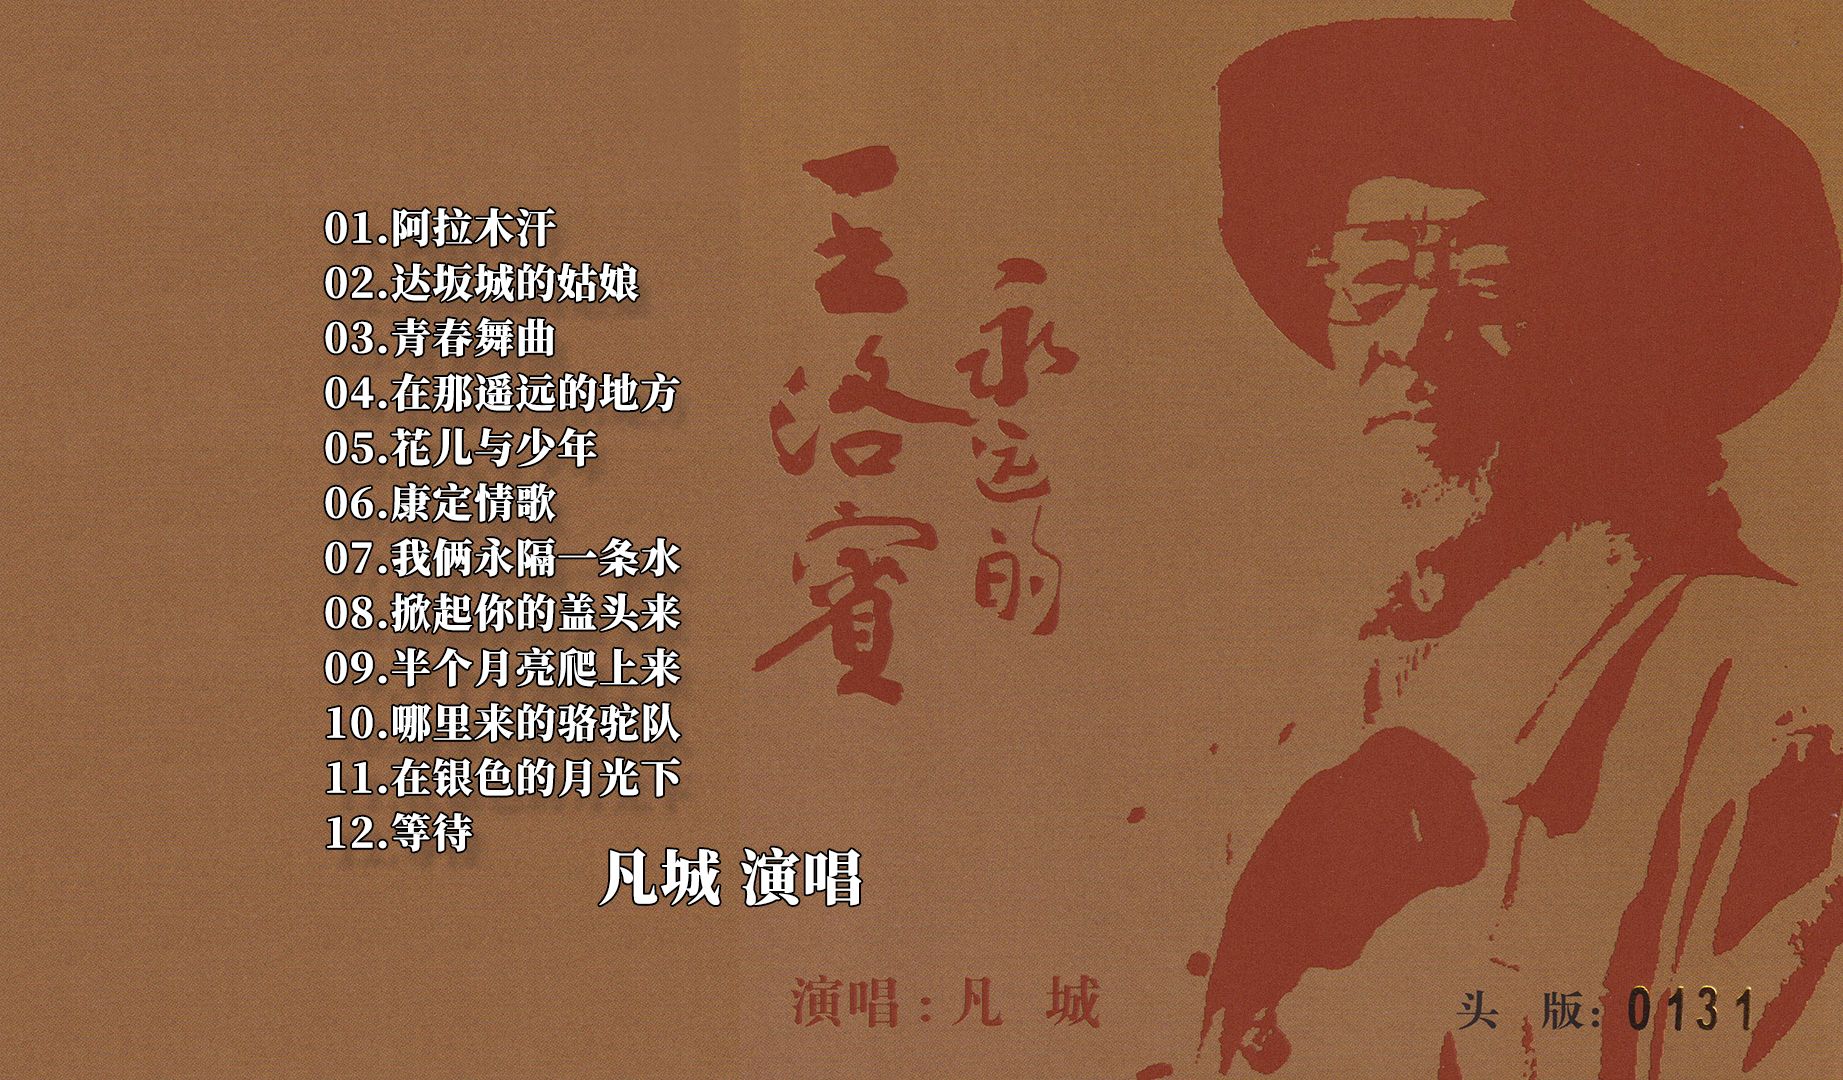 01.阿拉木汗
02.达坂城的姑娘
03.青春舞曲
04.在那遥远的地方
05.花儿与少年
06.康定情歌
07.我俩永隔一条水
08.掀起你的盖头来
09.半个月亮爬上来
10.哪里来的骆驼队
11.在银色的月光下
12.等待
凡城 演唱
永远的
王洛賓
演唱：凡 城
头 版：0131